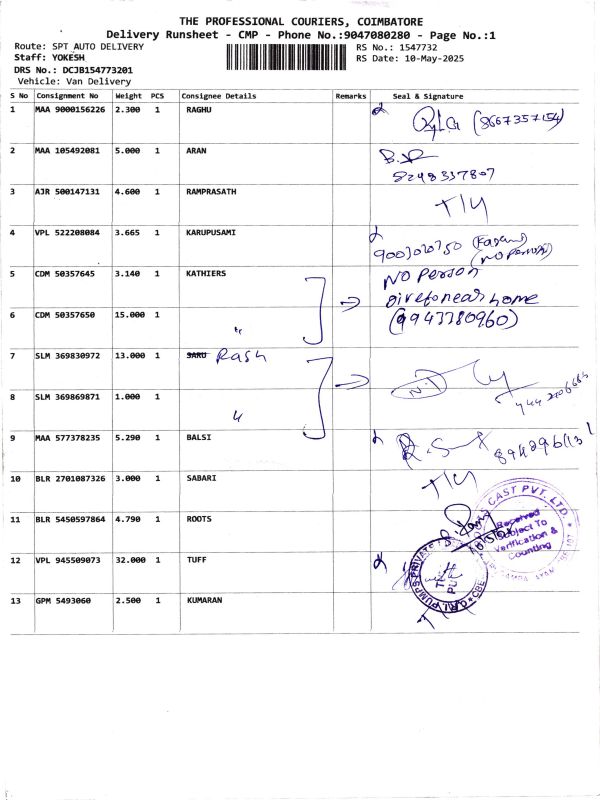 THE PROFESSIONAL COURIERS, COIMBATORE
Delivery Runsheet - CMP - Phone No.:9047080280 - Page No.:1
Route: SPT AUTO DELIVERY RS No.: 1547732
Staff: YOKESH RS Date: 10-May-2025
DRS No.: DCJB154773201
Vehicle: Van Delivery
S No Consignment No Weight PCS Consignee Details Remarks Seal & Signature
1 MAA 9000156226 2.300 1 RAGHU (8667357154)
2 MAA 105492081 5.000 1 ARAN
8248337807
3 AJR 500147131 4.600 1 RAMPRASATH T/y
4 VPL 522208084 3.665 1 KARUPUSAMI
(No Person)
5 CDM 50357645 3.140 1 KATHIERS No Person
give to near home
6 CDM 50357650 15.000 1 " (9943380960)
7 SLM 369830972 13.000 1 SARU Rash
8 SLM 369869871 1.000 1 "
9 MAA 577378235 5.290 1 BALSI
10 BLR 2701087326 3.000 1 SABARI T/y
11 BLR 5450597864 4.790 1 ROOTS
CAST PVT. LTD.
Received
Subject To
Verification &
Counting
12 VPL 945509073 32.000 1 TUFF
PUMPS PRIVATE
CBE
13 GPM 5493060 2.500 1 KUMARAN